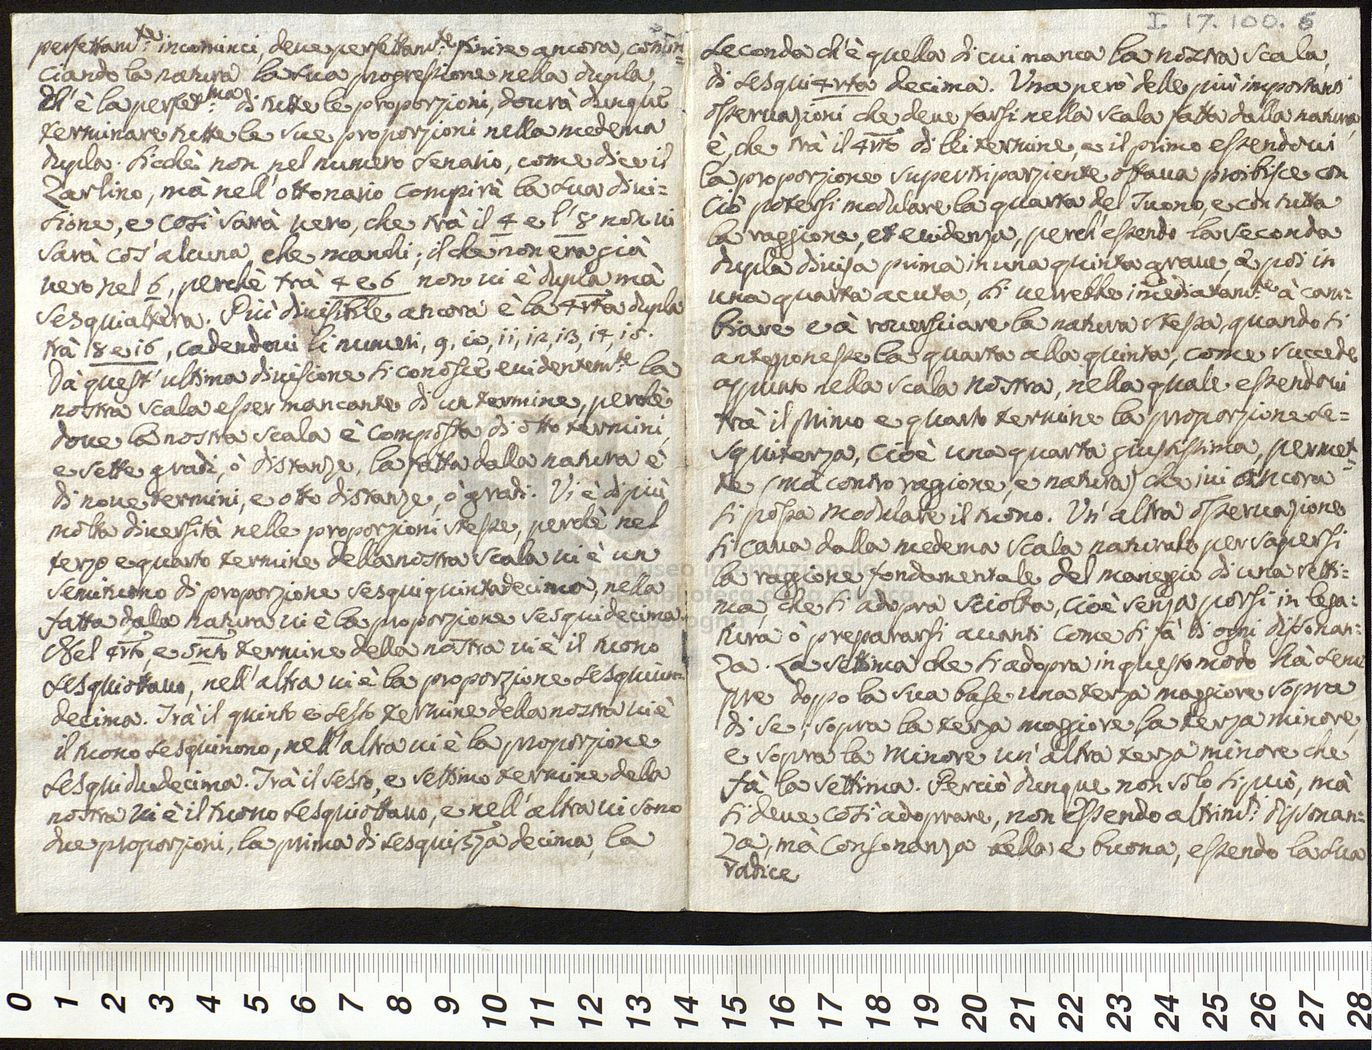 perfettam.te incominci, deve perfettam.te finire ancora, comin=
ciando la natura la sua progressione nella dupla,
ch'è la perfet.ma di tutte le proporzioni, dovrà dunque
terminare tutte le sue proporzioni nella medema
dupla. Sicchè non nel numero senario, come dice il
Zarlino, mà nell'ottonario compirà la sua divi=
sione, e così sarà vero, che trà il 4 e l'8 non vi
sarà cos'alcuna, che manchi; il che non era già
vero nel 6, perchè trà 4 e 6 non vi è dupla mà
sesquialtera. Più divisibile ancora è la 4rta dupla
trà 8 e 16, cadendovi li numeri, 9, 10, 11, 12, 13, 14, 15.
Da quest'ultima divisione si conosce evidentem.te la
nostra scala esser mancante di un termine, perchè
dove la nostra scala è composta di otto termini,
e sette gradi, ò distanze, la fatta dalla natura è
di nove termini, e otto distanze, ò gradi. Vi è di più
molta diversità nelle proporzioni stesse, perchè nel
terzo e quarto termine della nostra scala vi è un
semituono di proporzione sesquiquintadecima, nella
fatta dalla natura vi è la proporzione sesquidecima.
Nel 4rto, e 5nto termine della nostra vi è il tuono
sesquiottavo, nell'altra vi è la proporzione sesquiun=
decima. Trà il quinto e sesto termine della nostra vi è
il tuono sesquinono, nell'altra vi è la proporzione
sesquiduodecima. Trà il sesto, e settimo termine della
nostra vi è il tuono sesquiottavo, e nell'altra vi sono
due proporzioni, la prima di sesqui3za decima, la
I. 17. 100. 6
seconda ch'è quella di cui manca la nostra scala,
di sesqui4rta decima. Una però delle più importanti
osservazioni che deve farsi nella scala fatta dalla natura
è, che trà il 4rto di lei termine, e il primo essendovi
la proporzione supertriparziente ottava proibisce con
ciò potersi modulare la quarta del Tuono, e con tutta
la raggione, et evidenza, perch'essendo la seconda
dupla divisa prima in una quinta grave, e poi in
una quarta acuta, si verrebbe immediatam.te à cam=
biare e à roversciare la natura stessa, quando si
anteponesse la quarta alla quinta, come succede
appunto nella scala nostra, nella quale essendovi
trà il primo e quarto termine la proporzione se=
squiterza, cioè una quarta giustissima, permet=
te (mà contro raggione, e natura) che ivi ancora
si possa modulare il tuono. Un'altra osservazione
si cava dalla medema scala naturale per sapersi
la raggione fondamentale del maneggio di una setti=
ma, che si adopra sciolta, cioè senza porsi in lega=
tura ò prepararsi avanti come si fà di ogni dissonan=
za. La settima che si adopra in questo modo hà sem
pre doppo la sua base una terza maggiore sopra
di se; sopra la terza maggiore la terza minore,
e sopra la minore un'altra terza minore che
fà la settima. Perciò dunque non solo si può, mà
si deve così adoprare, non essendo altrim.i dissonan=
za, mà consonanza bella e buona, essendo la sua
radice